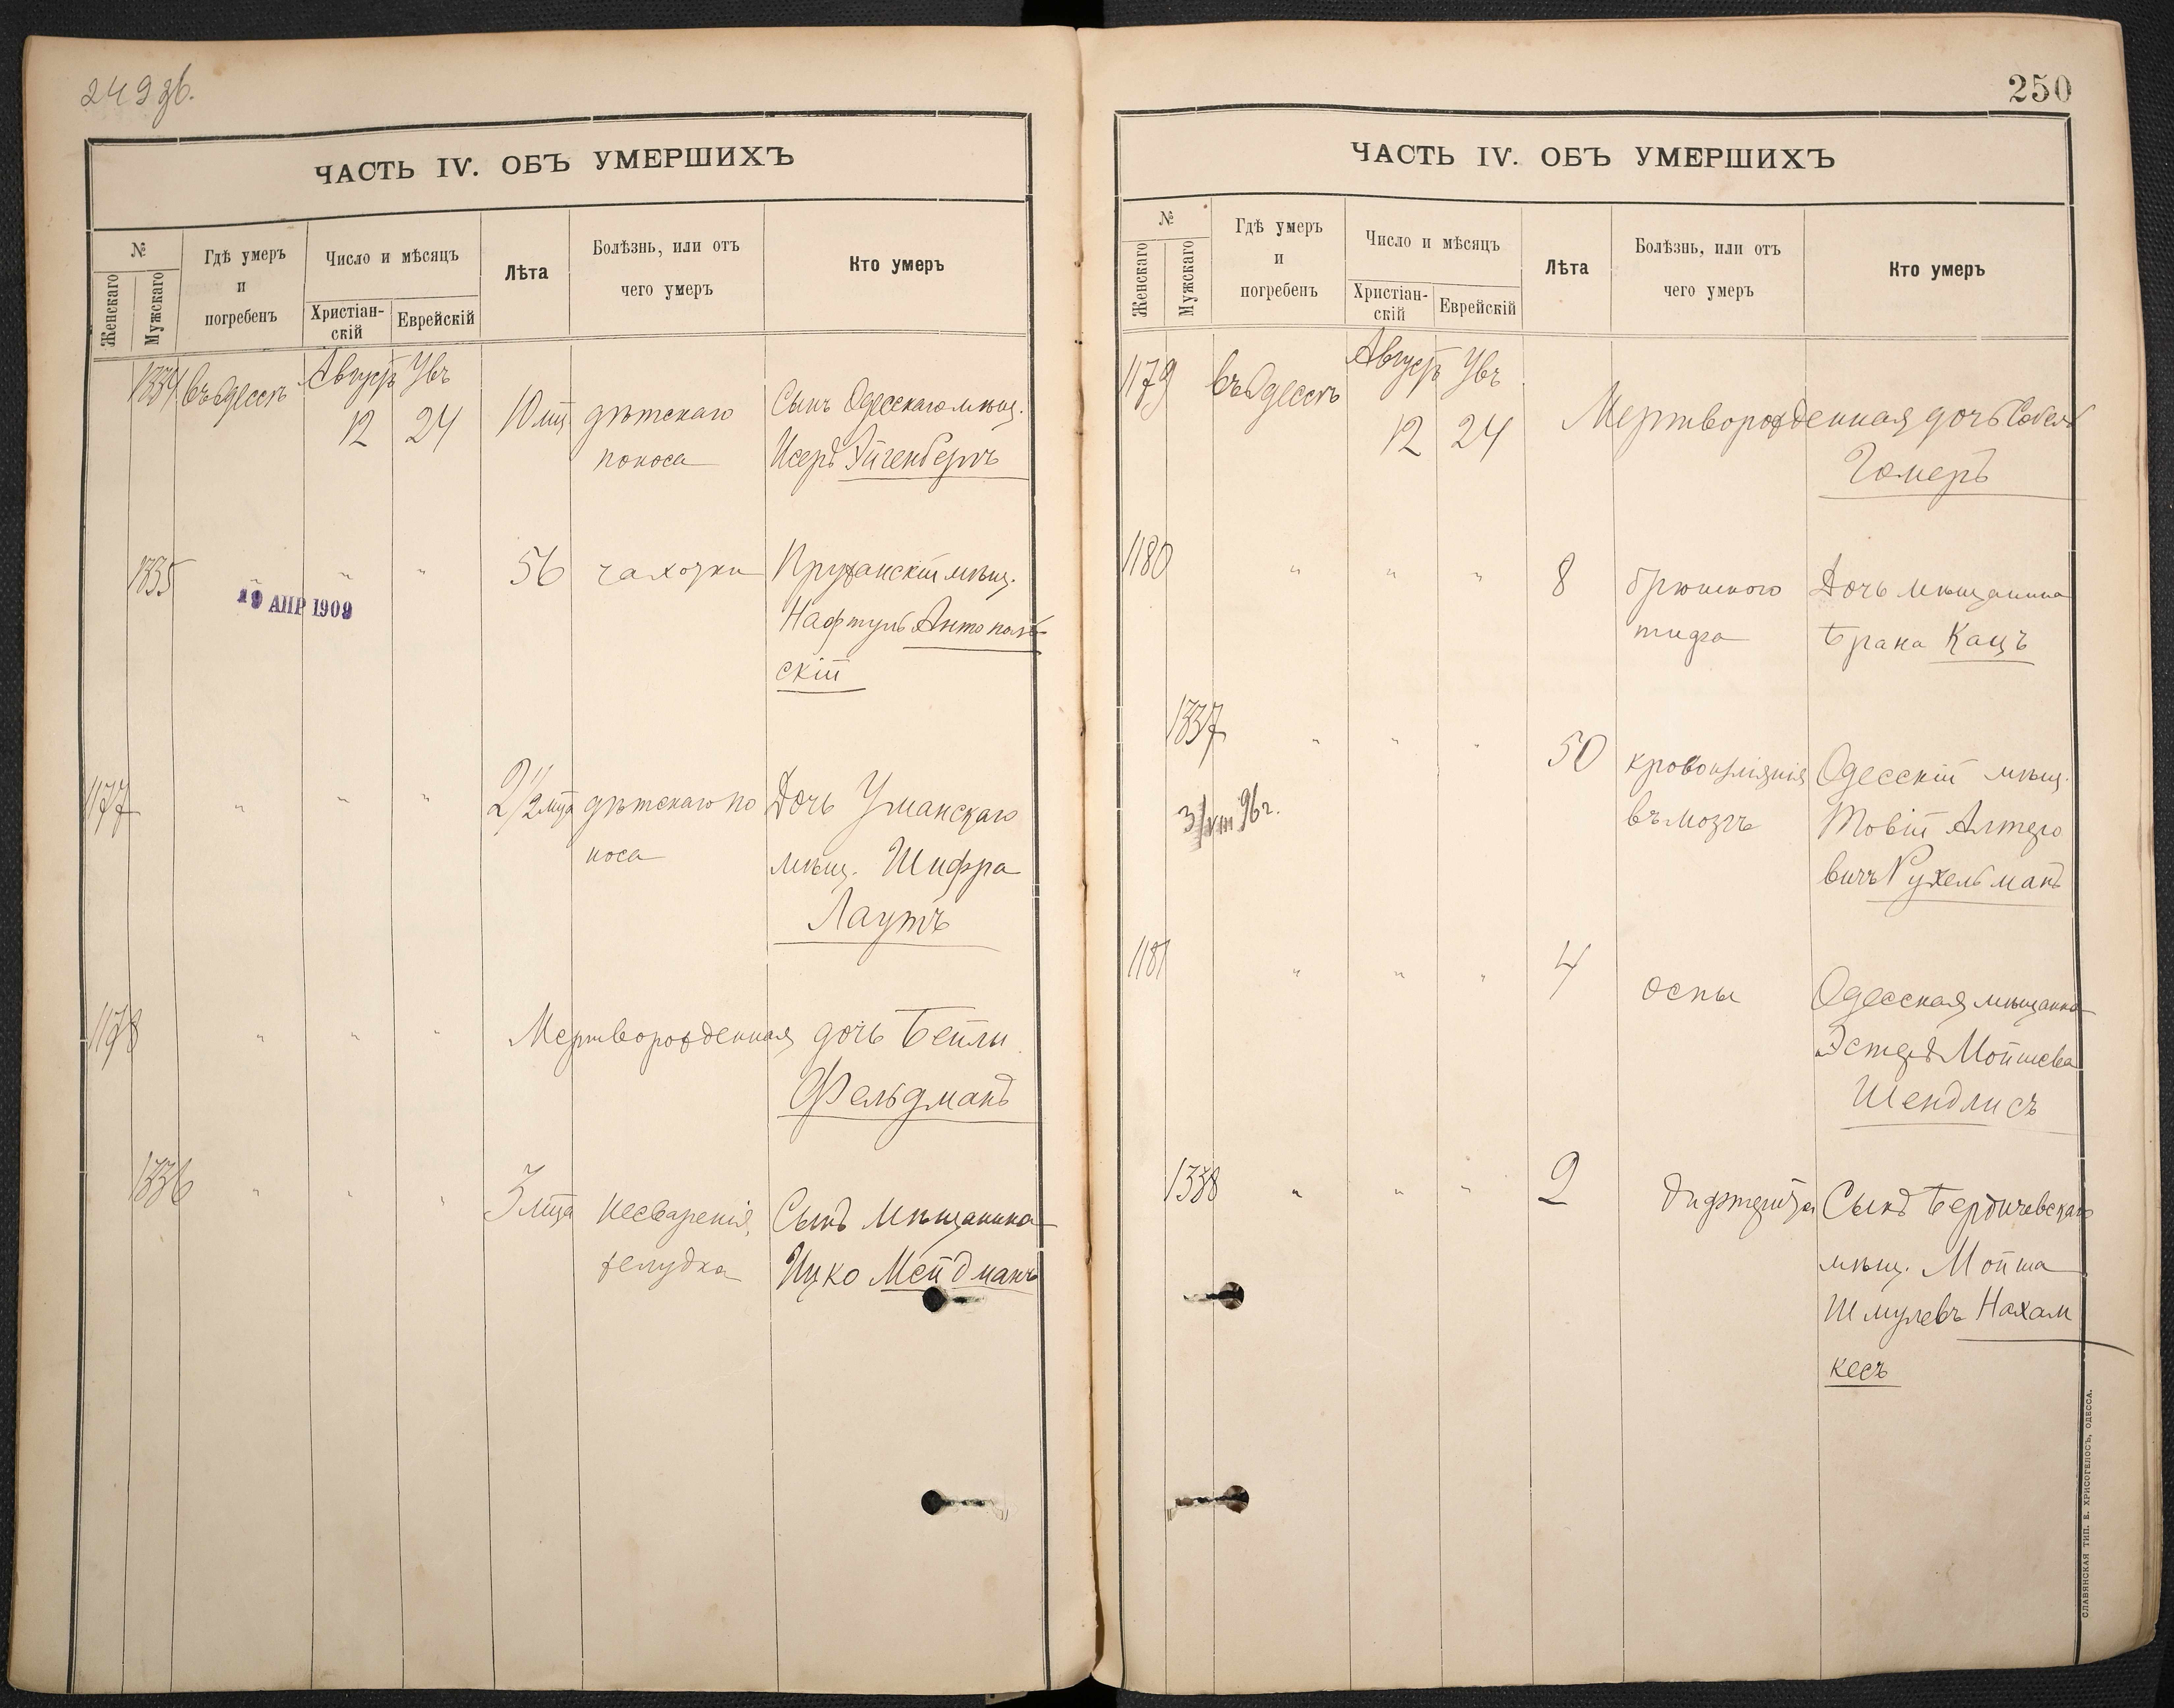 249 об.
ЧАСТЬ IV. ОБЪ УМЕРШИХЪ
№
Женскаго
Мужскаго
Гдѣ умеръ
и
погребенъ
Число и мѣсяцъ
Христіан-
скій
Еврейскій
Лѣта
Болѣзнь, или отъ
чего умеръ
Кто умеръ
1334 въ Одессѣ Августъ Увъ
12 24 10 мц. дѣтскаго Сынъ Одесскаго мѣщ.
поноса Исеръ Эйгенбергъ
1335 " " " 56 чахотки Пружанскій мѣщ.
19 АПР 1909
Нафтулъ Антополь-
скій
1177 " " " 2 1/2 мца дѣтскаго по Дочь Уманскаго
носа мѣщ. Шифра
Лаутъ
1178 " " " Мертворожденная дочь Бейлы
Фельдманъ
1336 " " " 3 мца несваренія Сынъ мѣщанина
желудка Ицко Мейдманъ
250
ЧАСТЬ IV. ОБЪ УМЕРШИХЪ
№
Женскаго
Мужскаго
Гдѣ умеръ
и
погребенъ
Число и мѣсяцъ
Христіан-
скій
Еврейскій
Лѣта
Болѣзнь, или отъ
чего умеръ
Кто умеръ
1179 въ Одессѣ Августъ Увъ
12 24 Мертворожденная дочь Собель
Гомеръ
1180 " " " 8 брюшного Дочь мѣщанина
тифа Брана Кацъ
1337 " " " 50 кровоизліянія Одесскій мѣщ.
3/VIII 96 г. въ мозгъ Товій Алтеро
вичъ Рухельманъ
1181 " " " 4 оспы Одесская мѣщанка
Эстеръ Мойшева
Шендлисъ
1338 " " " 2 дифтерита Сынъ Бердичевскаго
мѣщ. Мойша
Шмулевъ Нахам
кесъ
СЛАВЯНСКАЯ ТИП. Е. ХРИСОГЕЛОСЪ, ОДЕССА.